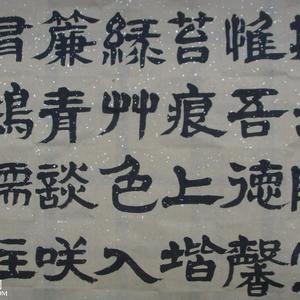 惟吾德馨
苔痕上堦
緑艸色入
簾青談咲
有鴻儒往